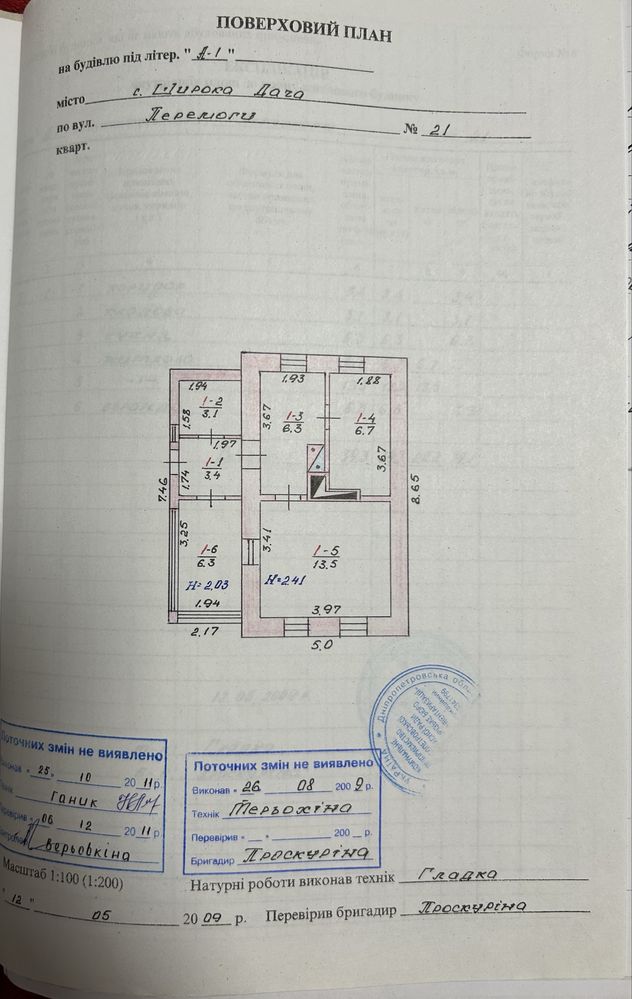 ПОВЕРХОВИЙ ПЛАН
на будівлю під літер. " А-1 "
місто с. Широка Дача
по вул. Перемоги № 21
кварт.
1.94
1-2
3.1
1.58
1.93
3.67
1-3
6.3
1.88
1-4
6.7
3.67
1.97
1-1
3.4
1.74
7.46
8.65
3,25
1-6
6.3
H=2.03
1.94
2.17
3.41
1-5
13.5
H=2.41
3.97
5.0
УКРАЇНА * Дніпропетровська обл
Поточних змін не виявлено
Виконав "25" 10 2011 р.
Ганик
Перевірив "06 12 2011 р.
Верьовкіна
Поточних змін не виявлено
Виконав "26 08 2009 р.
Технік Терьохіна
Перевірив " " 200 р.
Бригадир Проскуріна
Масштаб 1:100 (1:200)
Натурні роботи виконав технік Гладка
" 12 " 05 2009 р. Перевірив бригадир Проскуріна